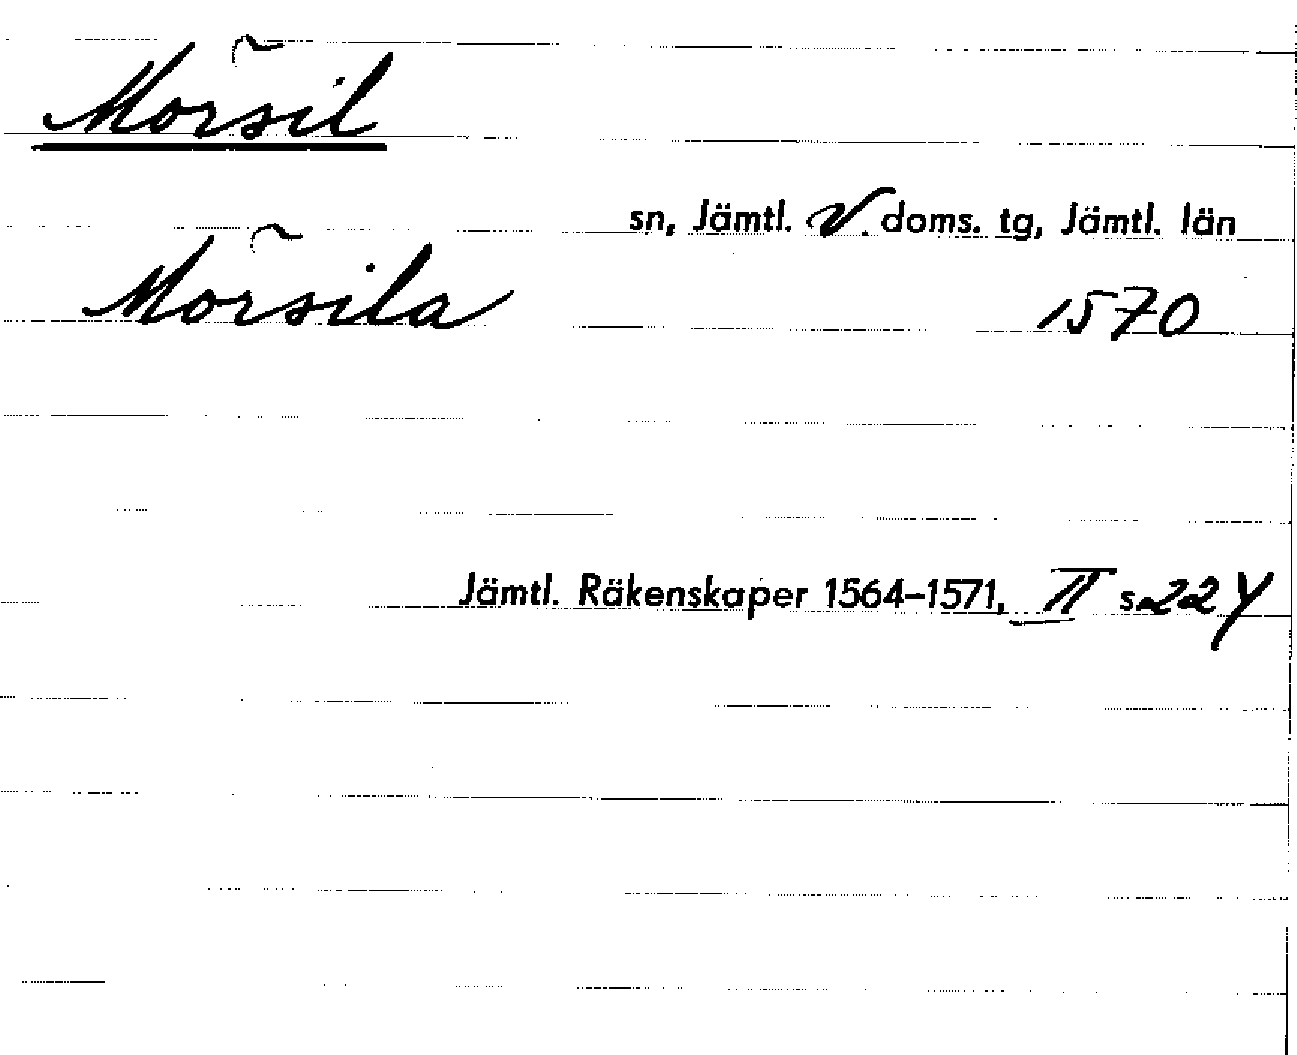 Mörsil
sn, Jämtl. V. doms. tg, Jämtl. län
Mörsila 1570
Jämtl. Räkenskaper 1564–1571, II s. 224